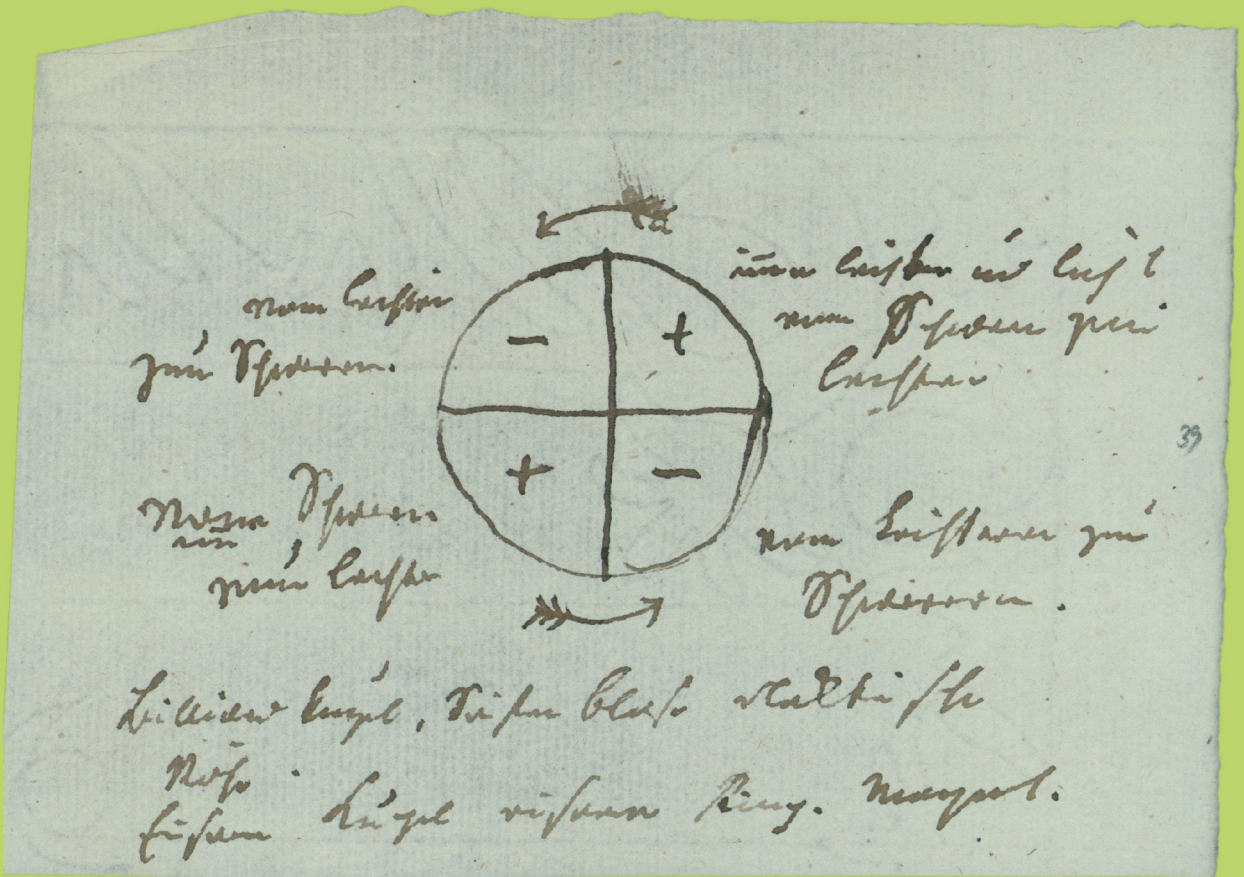 a
vom leichten
zum Schweren.
− +
leicht
vom Schweren zum
leichten
39
+ −
Vom Schweren
zum leichten
vom Leichteren zum
Schwereren.
Billiard Kugel, Seifen blase elektrische
Röhre
Eisern Kugel eisern Ring. Magnet.